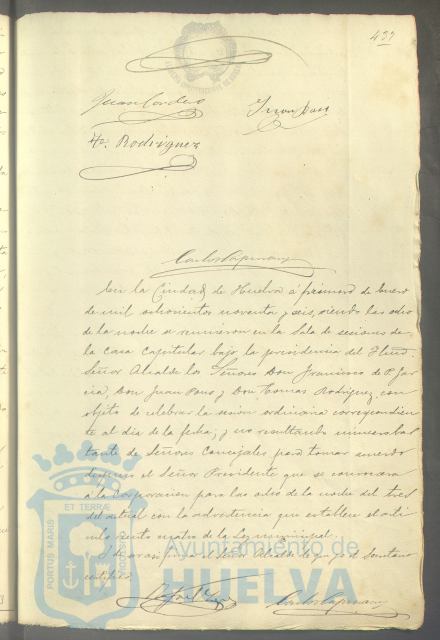 437
Juan Cordero
Juan Pons
Fo. Rodriguez
En la Ciudad de Huelva á primero de Enero
de mil ochocientos noventa y seis, siendo las ocho
de la noche se reunieron en la Sala de sesiones de
la casa capitular bajo la presidencia del Iltmo.
Señor Alcalde los Señores Don Francisco de P. Gar
cia, Don Juan Pons y Don Tomas Rodriguez, con
objeto de celebrar la sesion ordinaria correspondien
te al dia de la fecha; y no resultando número bas
tante de Señores Concejales para tomar acuerdo
dispuso el Señor Presidente que se convocara
a la Corporacion para las ocho de la noche del tres
del actual con la advertencia que establece el arti
culo ciento cuatro de la Ley municipal.
Señor Alcalde de que yo el Secretario
certifico.
PORTUS MARIS ET TERRÆ CUSTODIA
Ayuntamiento de
HUELVA